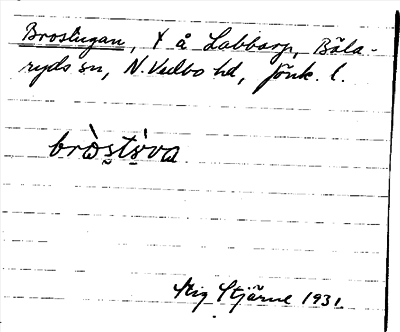 Broslugan, X å Labbarp, Bäla-
ryds sn, N. Vedbo hd, Jönk. l.
Stig Stjärne 1931.